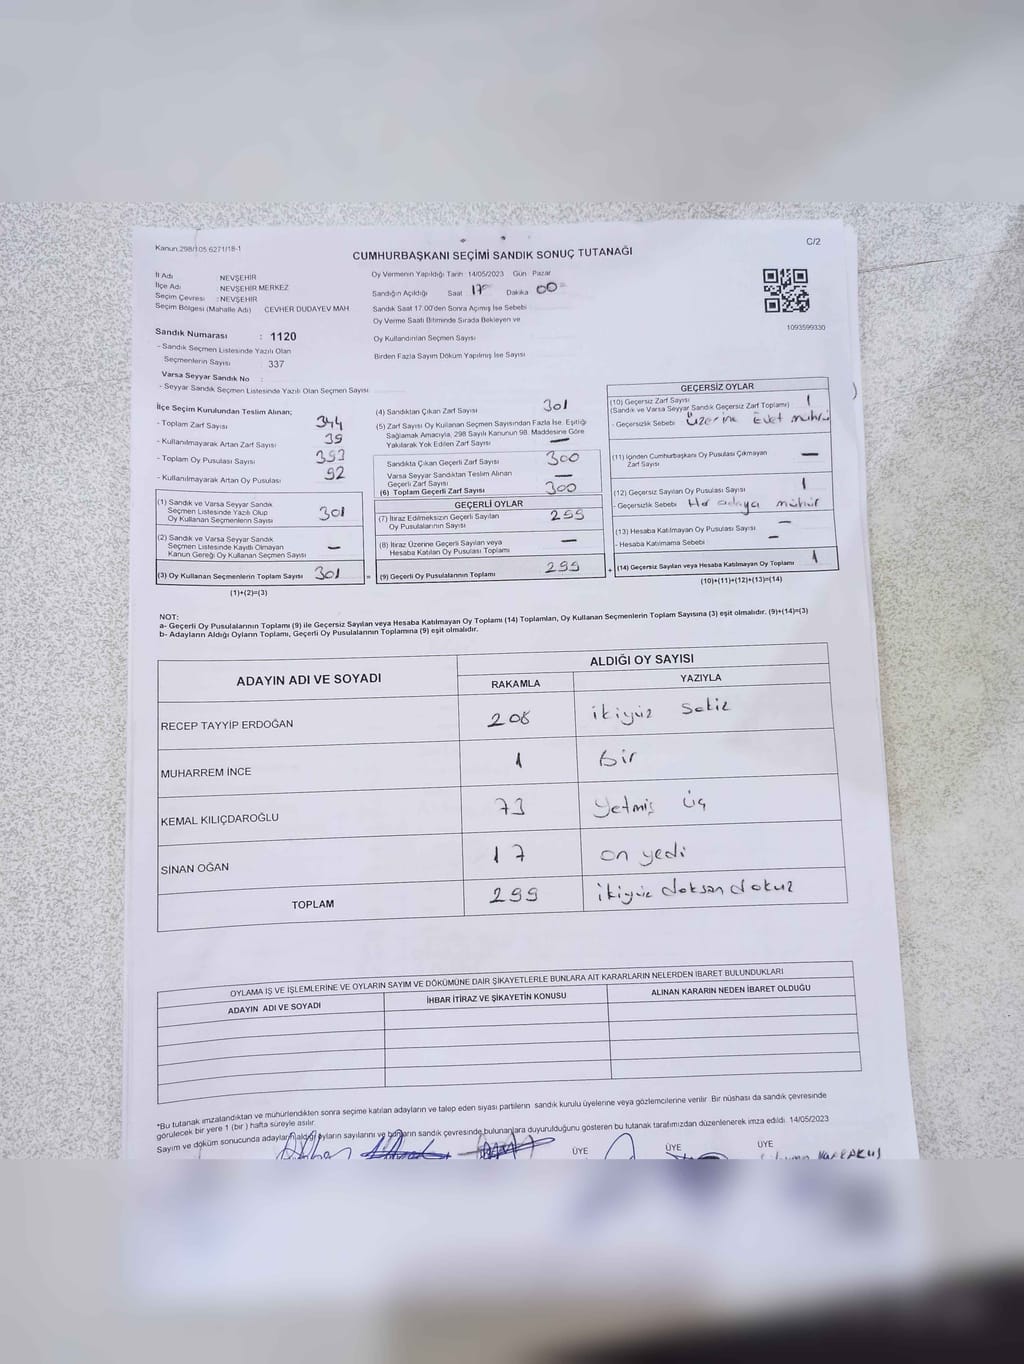 Kanun:298/105 6271/18-1
C/2
CUMHURBAŞKANI SEÇİMİ SANDIK SONUÇ TUTANAĞI
İl Adı NEVŞEHİR
İlçe Adı : NEVŞEHİR MERKEZ
Seçim Çevresi : NEVŞEHİR
Seçim Bölgesi (Mahalle Adı) CEVHER DUDAYEV MAH.
Oy Vermenin Yapıldığı Tarih: 14/05/2023 Gün : Pazar
Sandığın Açıldığı Saat 17 Dakika 00
Sandık Saat 17.00'den Sonra Açımış İse Sebebi
Oy Verme Saati Bitiminde Sırada Bekleyen ve
Oy Kullandırılan Seçmen Sayısı
Birden Fazla Sayım Döküm Yapılmış İse Sayısı
1093599330
Sandık Numarası : 1120
- Sandık Seçmen Listesinde Yazılı Olan
Seçmenlerin Sayısı : 337
Varsa Seyyar Sandık No :
- Seyyar Sandık Seçmen Listesinde Yazılı Olan Seçmen Sayısı
İlçe Seçim Kurulundan Teslim Alınan;
- Toplam Zarf Sayısı 344
- Kullanılmayarak Artan Zarf Sayısı 39
- Toplam Oy Pusulası Sayısı 393
- Kullanılmayarak Artan Oy Pusulası 92
(1) Sandık ve Varsa Seyyar Sandık
Seçmen Listesinde Yazılı Olup
Oy Kullanan Seçmenlerin Sayısı 301
(2) Sandık ve Varsa Seyyar Sandık
Seçmen Listesinde Kayıtlı Olmayan
Kanun Gereği Oy Kullanan Seçmen Sayısı —
(3) Oy Kullanan Seçmenlerin Toplam Sayısı 301
(1)+(2)=(3)
(4) Sandıktan Çıkan Zarf Sayısı 301
(5) Zarf Sayısı Oy Kullanan Seçmen Sayısından Fazla İse, Eşitliği
Sağlamak Amacıyla, 298 Sayılı Kanunun 98. Maddesine Göre
Yakılarak Yok Edilen Zarf Sayısı —
Sandıkta Çıkan Geçerli Zarf Sayısı 300
Varsa Seyyar Sandıktan Teslim Alınan
Geçerli Zarf Sayısı —
(6) Toplam Geçerli Zarf Sayısı 300
GEÇERLİ OYLAR
(7) İtiraz Edilmeksizin Geçerli Sayılan
Oy Pusulalarının Sayısı 299
(8) İtiraz Üzerine Geçerli Sayılan veya
Hesaba Katılan Oy Pusulası Toplamı —
= (9) Geçerli Oy Pusulalarının Toplamı 299
GEÇERSİZ OYLAR
(10) Geçersiz Zarf Sayısı
(Sandık ve Varsa Seyyar Sandık Geçersiz Zarf Toplamı) 1
- Geçersizlik Sebebi üzerine Evet mührü
(11) İçinden Cumhurbaşkanı Oy Pusulası Çıkmayan
Zarf Sayısı —
(12) Geçersiz Sayılan Oy Pusulası Sayısı 1
- Geçersizlik Sebebi : Her adaya mühür
(13) Hesaba Katılmayan Oy Pusulası Sayısı —
- Hesaba Katılmama Sebebi : —
+ (14) Geçersiz Sayılan veya Hesaba Katılmayan Oy Toplamı 1
(10)+(11)+(12)+(13)=(14)
NOT:
a- Geçerli Oy Pusulalarının Toplamı (9) ile Geçersiz Sayılan veya Hesaba Katılmayan Oy Toplamı (14) Toplamları, Oy Kullanan Seçmenlerin Toplam Sayısına (3) eşit olmalıdır. (9)+(14)=(3)
b- Adayların Aldığı Oyların Toplamı, Geçerli Oy Pusulalarının Toplamına (9) eşit olmalıdır.
ADAYIN ADI VE SOYADI
ALDIĞI OY SAYISI
RAKAMLA YAZIYLA
RECEP TAYYİP ERDOĞAN 208 ikiyüz sekiz
MUHARREM İNCE 1 Bir
KEMAL KILIÇDAROĞLU 73 yetmiş üç
SİNAN OĞAN 17 on yedi
TOPLAM 299 ikiyüz doksan dokuz
OYLAMA İŞ VE İŞLEMLERİNE VE OYLARIN SAYIM VE DÖKÜMÜNE DAİR ŞİKAYETLERLE BUNLARA AİT KARARLARIN NELERDEN İBARET BULUNDUKLARI
ADAYIN ADI VE SOYADI İHBAR İTİRAZ VE ŞİKAYETİN KONUSU ALINAN KARARIN NEDEN İBARET OLDUĞU
*Bu tutanak imzalandıktan ve mühürlendikten sonra seçime katılan adayların ve talep eden siyası partilerin sandık kurulu üyelerine veya gözlemcilerine verilir. Bir nüshası da sandık çevresinde
görülecek bir yere 1 (bir) hafta süreyle asılır.
Sayım ve döküm sonucunda adayların aldığı oyların sayılarını ve bunların sandık çevresinde bulunanlara duyurulduğunu gösteren bu tutanak tarafımızdan düzenlenerek imza edildi. 14/05/2023
ÜYE ÜYE ÜYE